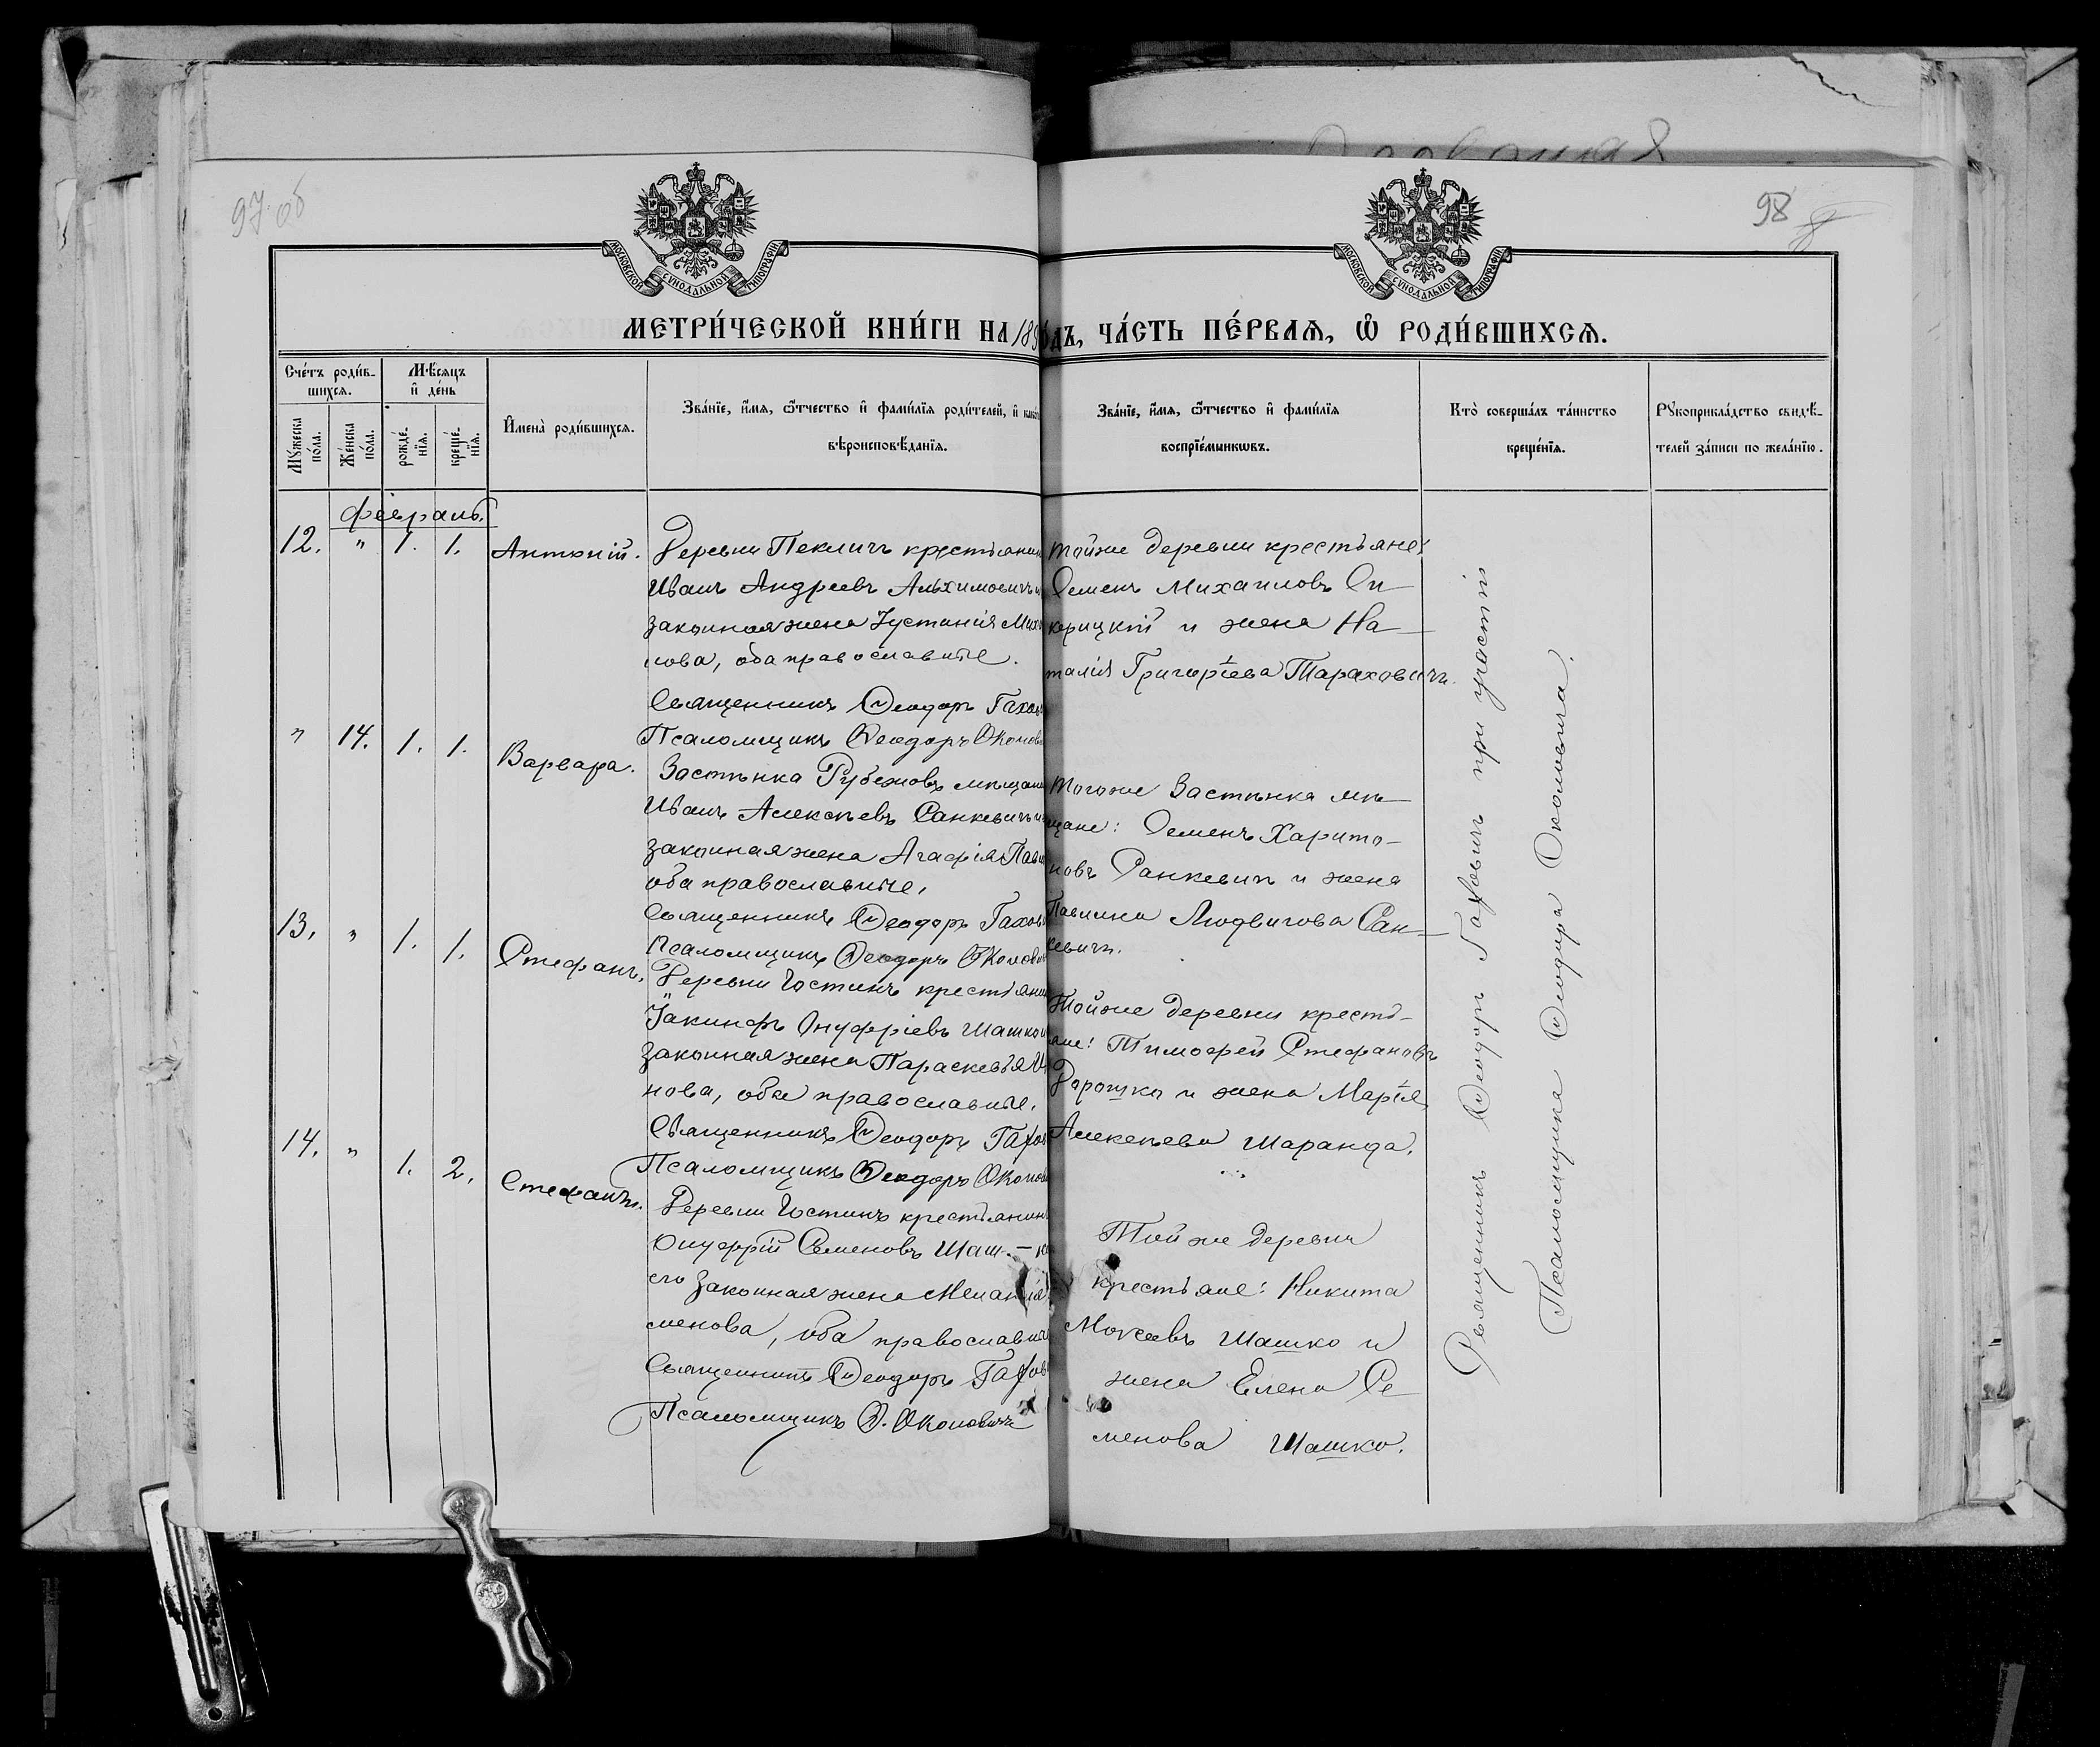 Розваная
97 об
98
МОСКОВСКОЙ СѴНОДАЛЬНОЙ ТИПОГРАФІИ
МОСКОВСКОЙ СѴНОДАЛЬНОЙ ТИПОГРАФІИ
МЕТРИ́ЧЕСКОЙ КНИ́ГИ НА 189
ОДЪ, ЧА́СТЬ ПЕ́РВАЯ, Ѽ РОДИ́ВШИХСѦ.
Сче́тъ роди́в-
шихсѧ.
Мꙋ́жеска по́ла.
Же́нска по́ла.
Мѣ́сѧцъ
и҆ де́нь
рожде́-
нїѧ.
креще́-
нїѧ.
И҆мена̀ роди́вшихсѧ.
Зва́нїе, и҆́мѧ, ѻ҆́тчество и҆ фами́лїѧ роди́телей, и҆ како
вѣроисповѣ́данїѧ.
Зва́нїе, и҆́мѧ, ѻ҆́тчество и҆ фами́лїѧ
воспрїе́мникѡвъ.
Кто̀ соверша́лъ та́инство
креще́нїѧ.
Рꙋкоприкла́дство свидѣ́-
телей за́писи по жела́нїю.
Февраль.
12. " 1. 1. Антоній.
Деревни Пекличъ крестьянин
Иванъ Андреевъ Альхимовичъ и
законная жена Іустинія Миха
лова, оба православные.
Священникъ Ѳеодоръ Гахов
Псаломщикъ Ѳеодоръ Околов
Тойже деревни крестьяне:
Семенъ Михаиловъ Си
корицкій и жена На
талія Григоріева Тараховичъ.
" 14. 1. 1. Варвара.
Застѣнка Рубежовъ мѣщани
Иванъ Алексѣевъ Санкевичъ и
законная жена Агафія Павл
оба православные,
Священникъ Ѳеодоръ Гахов
Псаломщикъ Ѳеодоръ Околови
Тогоже Застѣнка мѣ
щане: Семенъ Харито-
новъ Санкевичъ и жена
Павлина Людвигова Сан
кевичъ.
13. " 1. 1. Стефанъ.
Деревни Гостинъ крестьянин
Іакинфъ Онуфріевъ Шашко и
законная жена Параскевія И
нова, оба православные.
Священникъ Ѳеодоръ Гахов
Псаломщикъ Ѳеодоръ Околов
Тойже деревни кресть-
яне: Тимофей Стефановъ
Дорошко и жена Марія
Алексѣева Шаранда.
14. " 1. 2. Стефанъ.
Деревни Гостинъ крестьянин
Онуфрій Семеновъ Шаш-ко
его законная жена Меланія
менова, оба православна
Священникъ Ѳеодоръ Гахов
Псаломщикъ Ѳ. Околовичъ
Той же деревни
крестьяне: Никита
Мокеевъ Шашко и
жена Елена Се
менова Шашко.
Священникъ Ѳеодоръ Гаховичъ при участіи
Псаломщика Ѳеодора Околовича.